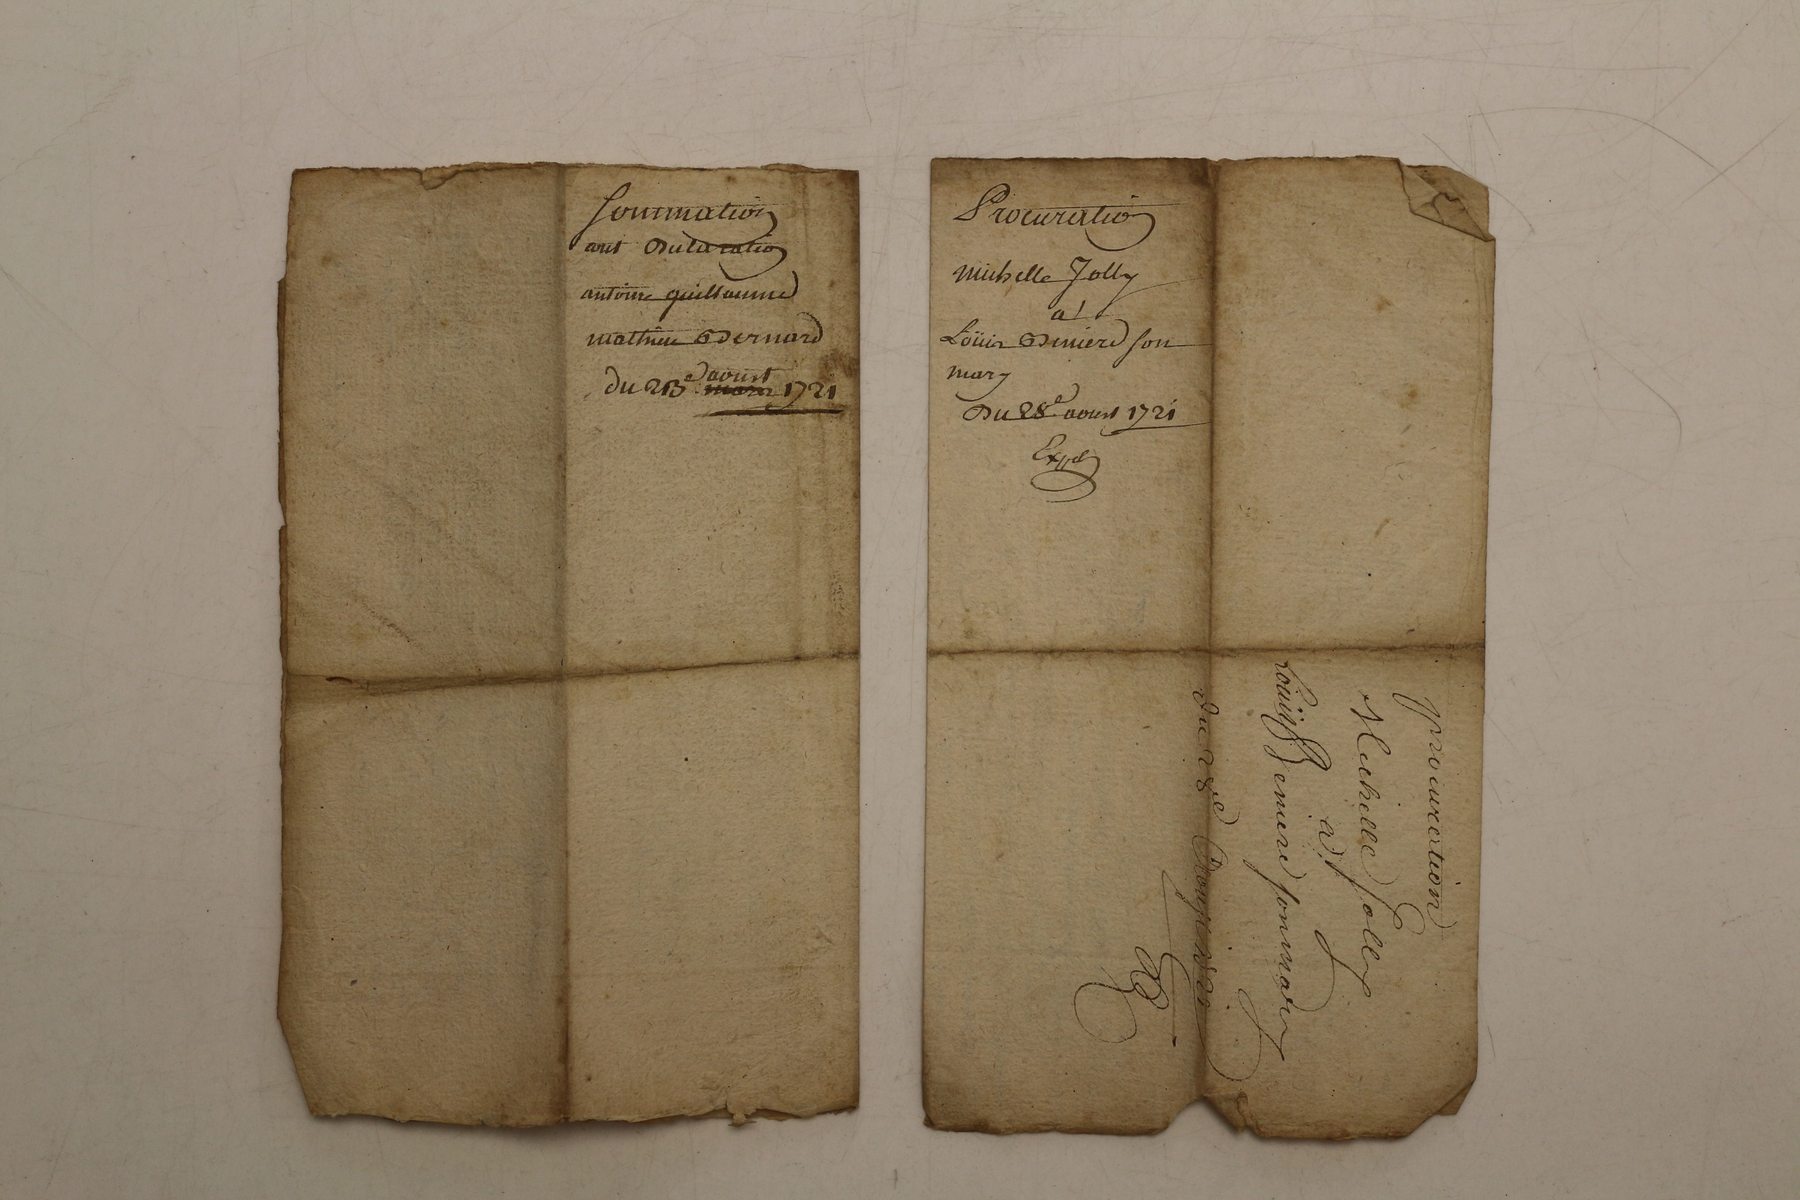 Sommation
aut Declaration
antoine guillaume
mathieu Bernard
du 28e aoust mars 1721
Procuration
michelle Jolly
a
Loüis Deniere son
mary
Du 28e aoust 1721
Expd
procuration
Michelle Jolly
a
Loüis Deniere son mary
du 28e